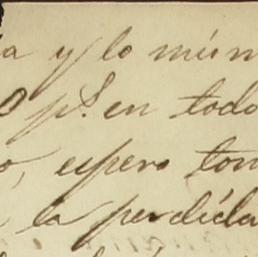 a y lo mism
0 p.S. en todo
o, espero tom
la perdida